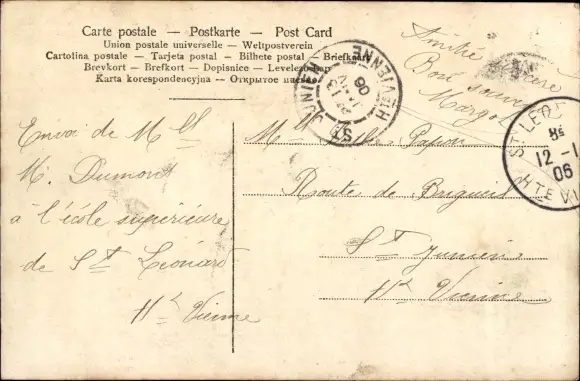 Carte postale — Postkarte — Post Card
Union postale universelle — Weltpostverein
Cartolina postale — Tarjeta postal — Bilhete postal — Briefkaart
Brevkort — Brefkort — Dopisnice — Levelező-lap
Karta korespondencyjna — Открытое письмо
Amitié sincère
Bon souvenir
Margot
ST JUNIEN
HTE VIENNE
06
ST LEO
8E
12 -1
06
HTE VI
Envoi de Mlle
M. Dumont
à l'école supérieure
de St Léonard
Hte Vienne
Papon
Route de Brigueil
St Junien
Hte Vienne